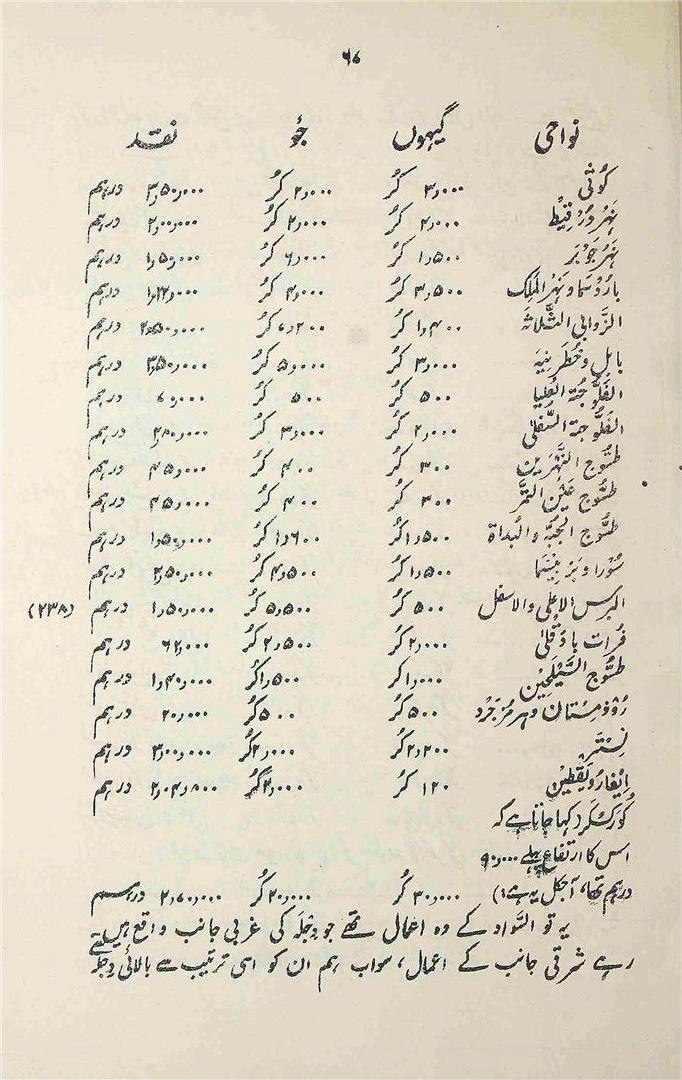 ۶۷
نواحی گیہوں جَو نقد
کُوثٰی ۳٫۰۰۰ کُر ۲٫۰۰۰ کُر ۳٫۵۰٫۰۰۰ درہم
نَہر دُرْقِیْط ۲٫۰۰۰ کُر ۲٫۰۰۰ کُر ۲٫۰۰٫۰۰۰ درہم
نَہر جَوبَر ۱٫۵۰۰ کُر ۶٫۰۰۰ کُر ۱٫۵۰٫۰۰۰ درہم
بارُوسما و نَہر المَلِک ۳٫۵۰۰ کُر ۴٫۰۰۰ کُر ۱٫۲۲٫۰۰۰ درہم
الزَّوابی الثَّلاثَہ ۱٫۴۰۰ کُر ۷٫۲۰۰ کُر ۲٫۵۰٫۰۰۰ درہم
بابِل و خُطَرنِیہ ۳٫۰۰۰ کُر ۵٫۰۰۰ کُر ۳٫۵۰٫۰۰۰ درہم
الفَلُّوجۃ العُلیا ۵۰۰ کُر ۵۰۰ کُر ۷۰٫۰۰۰ درہم
الفَلُّوجۃ السُّفلٰی ۲٫۰۰۰ کُر ۳٫۰۰۰ کُر ۲٫۸۰٫۰۰۰ درہم
طَسُّوج النَّہرَین ۳۰۰ کُر ۴۰۰ کُر ۴۵٫۰۰۰ درہم
طَسُّوج عَیْن التَّمَر ۳۰۰ کُر ۴۰۰ کُر ۴۵٫۰۰۰ درہم
طَسُّوج الجُبَّہ والبُداۃ ۱٫۵۰۰ کُر ۱٫۶۰۰ کُر ۱٫۵۰٫۰۰۰ درہم
سُورا و بَربِیسَما ۱٫۵۰۰ کُر ۴٫۵۰۰ کُر ۲٫۵۰٫۰۰۰ درہم
البرس الاعلی والاسفل ۵۰۰ کُر ۵٫۵۰۰ کُر ۱٫۵۰٫۰۰۰ درہم (۲۳۸)
فُرات بادَقلیٰ ۲٫۰۰۰ کُر ۲٫۵۰۰ کُر ۶۲٫۰۰۰ درہم
طَسُّوج السَّیلَحِین ۱٫۰۰۰ کر ۱٫۵۰۰ کُر ۱٫۴۰٫۰۰۰ درہم
رُوذمِستان و ہرمُزجَرد ۵۰۰ کُر ۵۰۰ کُر ۲۰٫۰۰۰ درہم
نِستَر ۲٫۲۰۰ کُر ۲٫۰۰۰ کُر ۳٫۰۰٫۰۰۰ درہم
اِیغارُ ویَقطِین ۱۲۰ کُر ۲٫۰۰۰ کُر ۲٫۰۴٫۸۰۰ درہم
کُورَ کَسکَر (کہا جاتا ہے کہ
اس کا ارتفاع پہلے ۹۰٫۰۰۰
درہم تھا، آجکل یہ ہے:) ۳۰٫۰۰۰ کُر ۲۰٫۰۰۰ کُر ۲٫۷۰٫۰۰۰ درہم
یہ تو السَّواد کے وہ اعمال تھے جو دِجلَہ کی غربی جانب واقع ہیں۔
رہے شرقی جانب کے اعمال، سو اب ہم ان کو اسی ترتیب سے بالائی دِجلہ سے